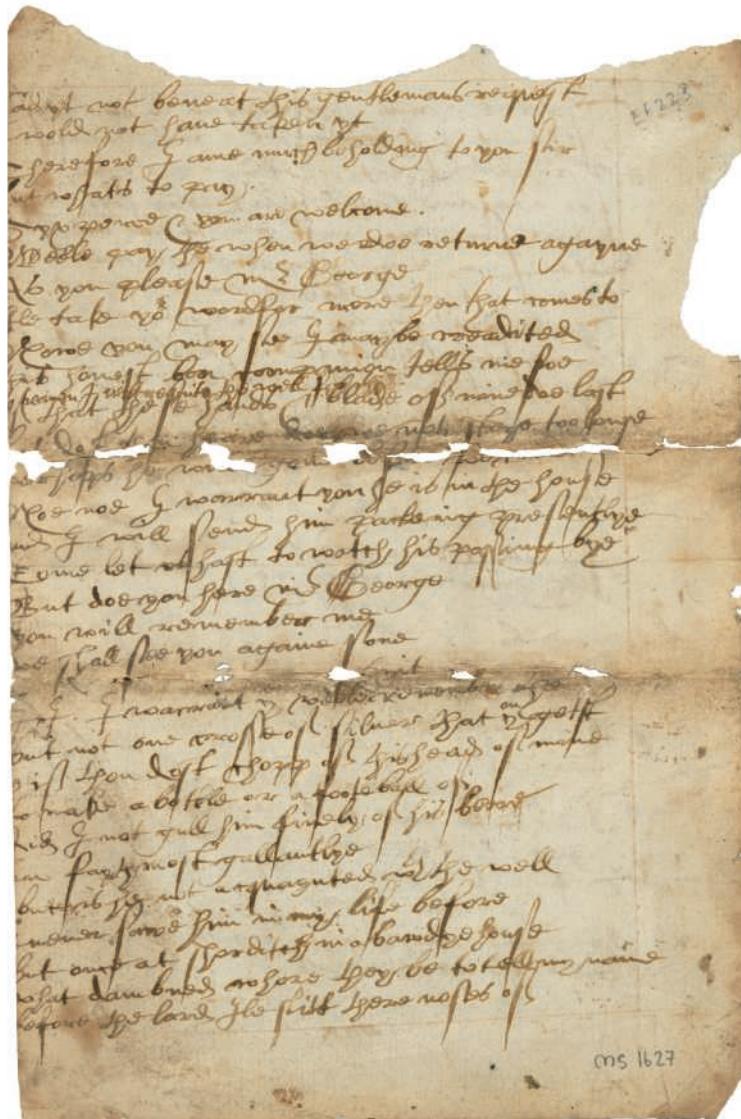 not beneat this gentlemans request
wold not have taken yt
EL 223
Therefore I ame much beholding to you sir
whats to pay.
pence & you are welcome.
Weele pay the when we doe returne agayne
As you please mr George
Ile take yor word for more then that comes to
Nowe you may see I maybe creadited
this honest bon companion tells me soe
that these hands blade off mine
doe we not stay to longe
perhaps he
Noe noe I warrant you he is in the house
and I will send him packeing presentlye
Come let us hast to watch his passing bye
But doe you here mr George
you will remember me
we shall see you againe sone
Exit
I. I warrant y weele remember the
but not one crosse off silver that thou getst
iff thou dost chopp off his head off mine
to make a bottle or a footeball off
did I not gull him finely off his beere
fayth most gallantlye
but is he not acquaynted wth the well
I never sawe him in my life before
but once at shorditch in a bawdye house
what dambned whore they be to tell my name
before the lord Ile slitt there noses off
ms 1627